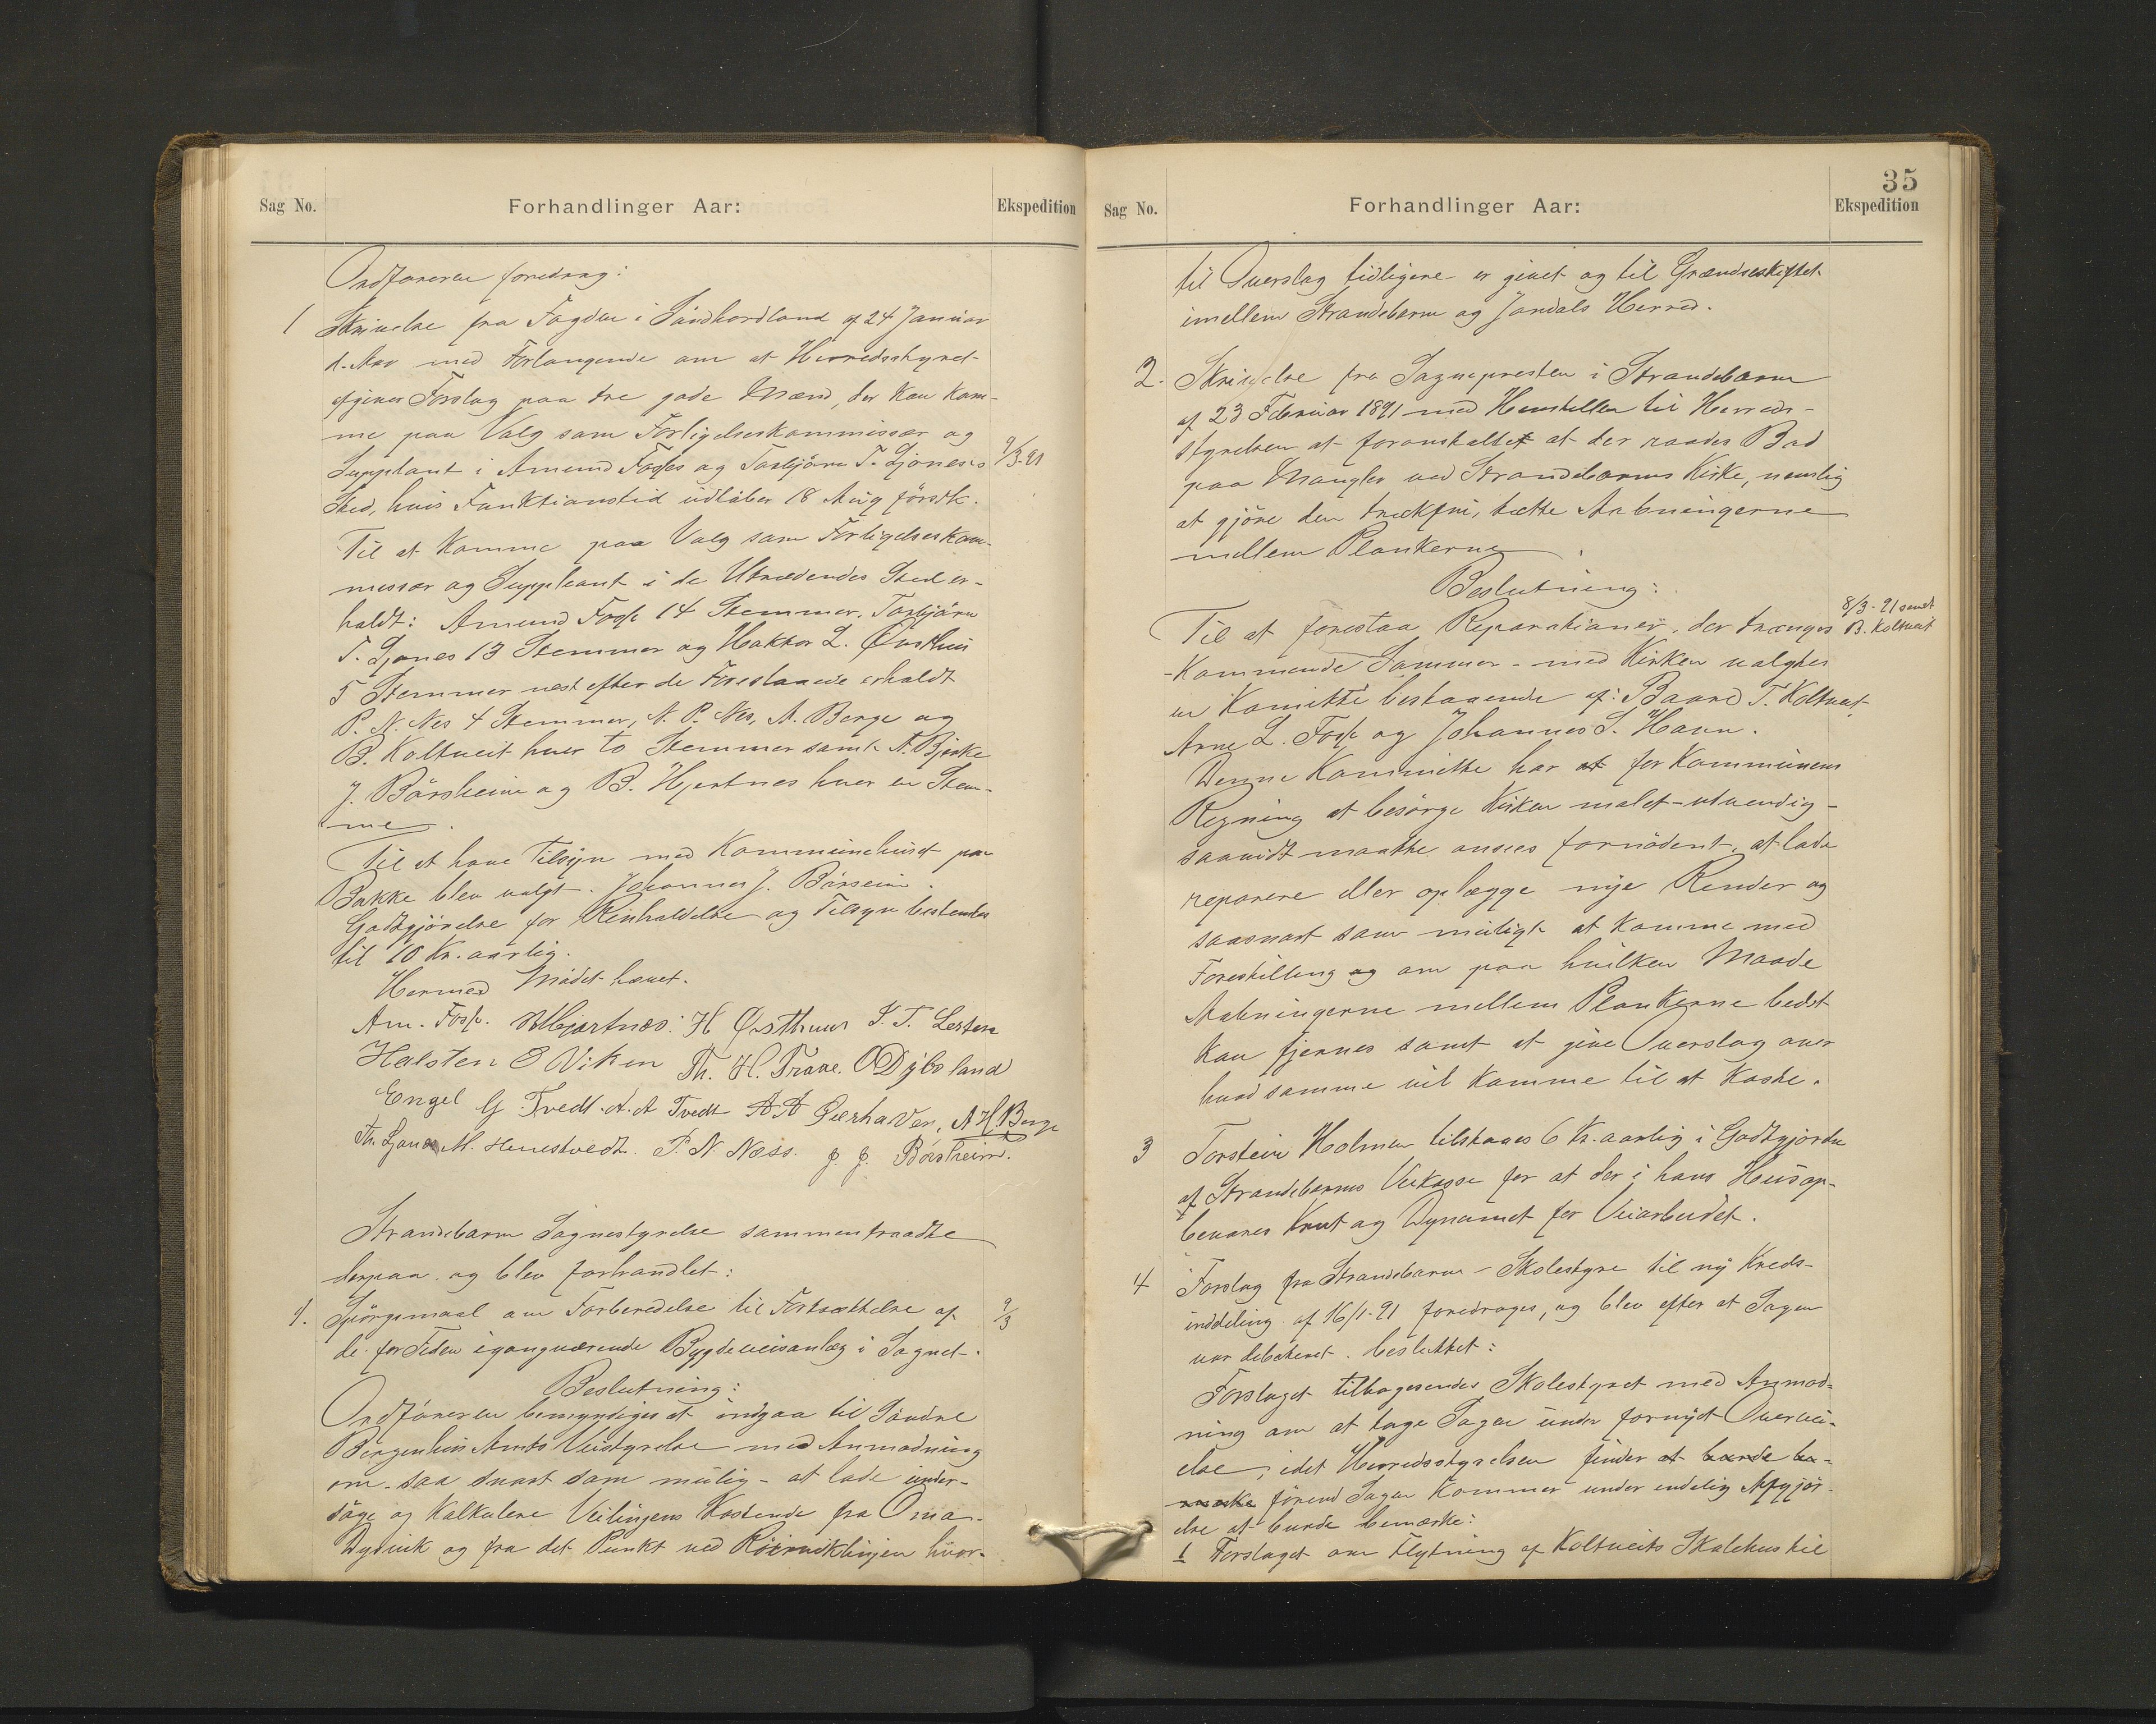 Sag No. Forhandlinger Aar: Ekspedition
Ordføreren foredrog:
1 Skrivelse fra Fogden i Søndhordland af 24 Januar
d. Aar med Forlangende om at Herredsstyret
afgiver Forslag paa tre gode Mænd, der kan kom-
me paa Valg som Forligelseskommissær og
Suppleant i Amund Fosse og Torbjørn T. Ljoneses 9/3-91
Sted, hvis Funktionstid udløber 18 Aug førstk.
Til at komme paa Valg som Forligelseskom-
missær og Suppleant i de Utrædendes Sted er-
holdt: Amund Fosse 14 Stemmer, Torbjørn
T. Ljones 13 Stemmer og Haktor L. Øvsthus
5 Stemmer næst efter de Foreslaaede erholdt
P. N. Nes 4 Stemmer, N. P. Nes, A. Berge og
B. Koltveit hver to Stemmer samt A. Bjerke
J. Børsheim og B. Hjertnes hver en Stem-
me.
Til at have Tilsyn med Kommunehuset paa
Bakke blev valgt. Johannes J. Børseim.
Godtgjørelse for Renholdelse og Tilsyn bestemtes
til 10 Kr. aarlig.
Hermed Mødet hævet.
Am. Fosse. B Hjartnæs. H Øvsthuus
Halsten O Viken Th. H. Trane. O Dybsland
Engel G Tvedt. A. A Tvedt A A Gjerhaven, A H. Berge
Th. Ljones M. Hennestvedt. P. N Næss. J. J. Børsheim.
Strandebarm Sognestyrelse sammentraadte
derpaa og blev forhandlet:
1. Spørgsmaal om Forberedelse til Fortsættelse af 9/3
de for Tiden igangværende Bygdeveisanlæg i Sognet.
Beslutning:
Ordføreren bemyndiges at indgaa til Søndre
Bergenhus Amts Veistyrelse med Anmodning
om saa snart som mulig at lade under-
søge og kalkulere Veilinjens Kostende fra Oma-
Dysvik og fra det Punkt ved Røirviklinjen hvor-
35
Sag No. Forhandlinger Aar: Ekspedition
til Overslag tidligere er givet og til Grændseskiftet
imellem Strandebarm og Jondals Herred.
2. Skrivelse fra Sognepresten i Strandebarm
af 23 Februar 1891 med Henstillen til Herreds-
styrelsen at foranstaltet at der raades Bod
paa Mangler ved Strandebarms Kirke, nemlig
at gjøre den trækfri, tætte Aabningerne
mellem Plankerne.
Beslutning:
Til at forestaa Reparationer, der trænges 8/3-91 sendt
B. Koltveit
-kommende Sommer - med Kirken valgtes
en Komitte bestaaende af: Baard T. Koltveit,
Arne L. Fosse og Johannes S. Haun.
Denne Kommitte har at for Kommunens
Regning at besørge Kirken malet - utvendig -
saavidt maatte ansees fornødent, at lade
reparere eller oplægge nye Render og
saasnart som muligt at komme med
Forestilling og om paa hvilken Maade
Aabningerne mellem Plankerne bedst
kan fjernes samt at give Overslag over
hvad samme vil komme til at koste.
3 Torstein Holmen tilstaaes 6 Kr. aarlig i Godtgjørelse
af Strandebarms Veikasse for at der i hans Hus op-
bevares Krut og Dynamit for Veiarbeidet.
4 Forslag fra Strandebarm - Skolestyre til ny Kreds-
inddeling af 16/1-91 foredroges, og blev efter at Sagen
var debateret. besluttet:
Forslaget tilbagesendes Skolestyret med Anmod-
ning om at tage Sagen under fornyet Overvei-
else, idet Herredsstyrelsen finder at burde be-
mærke førend Sagen kommer under endelig Afgjør-
else at burde bemærke:
1 Forslaget om Flytning af Koltveits Skolehus til